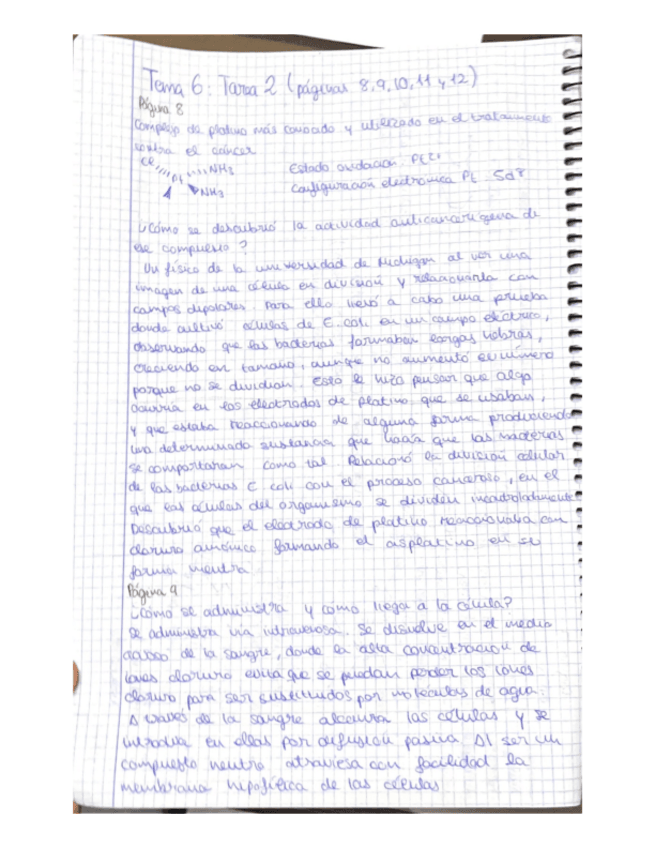 Tema 6: Tarea 2 (páginas 8,9,10,11 y 12)
Página 8
Complejo de platino más conocido y utilizado en el tratamiento
contra el cáncer
Cl NH3
Pt
NH3
Estado oxidación Pt2+
Configuración electrónica Pt 5d8
¿Cómo se descubrió la actividad anticancerígena de
ese compuesto?
Un físico de la universidad de Michigan al ver una
imagen de una célula en división y relacionarla con
campos dipolares. Para ello llevó a cabo una prueba
donde cultivó células de E. coli en un campo eléctrico,
observando que las bacterias formaban largas hebras,
creciendo en tamaño, aunque no aumentó su número
porque no se dividían. Esto le hizo pensar que algo
ocurría en los electrodos de platino que se usaban,
y que estaba reaccionando de alguna forma produciendo
una determinada sustancia que hacía que las bacterias
se comportaran como tal. Relacionó la división celular
de las bacterias E coli con el proceso canceroso, en el
que las células del organismo se dividen incontroladamente
Descubrió que el electrodo de platino reaccionaba con
cloruro amónico formando el cisplatino en su
forma neutra
Página 9
¿Cómo se administra y cómo llega a la célula?
Se administra vía intravenosa. Se disuelve en el medio
acuoso de la sangre, donde la alta concentración de
iones cloruro evita que se puedan perder los iones
cloruro para ser sustituidos por moléculas de agua.
A través de la sangre alcanza las células y se
introduce en ellas por difusión pasiva. Al ser un
compuesto neutro atraviesa con facilidad la
membrana lipofílica de las células.